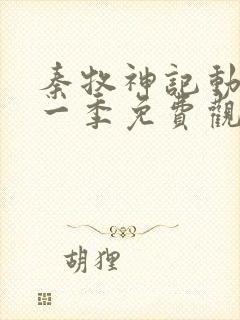 秦牧神記動
一季免費觀
胡狸